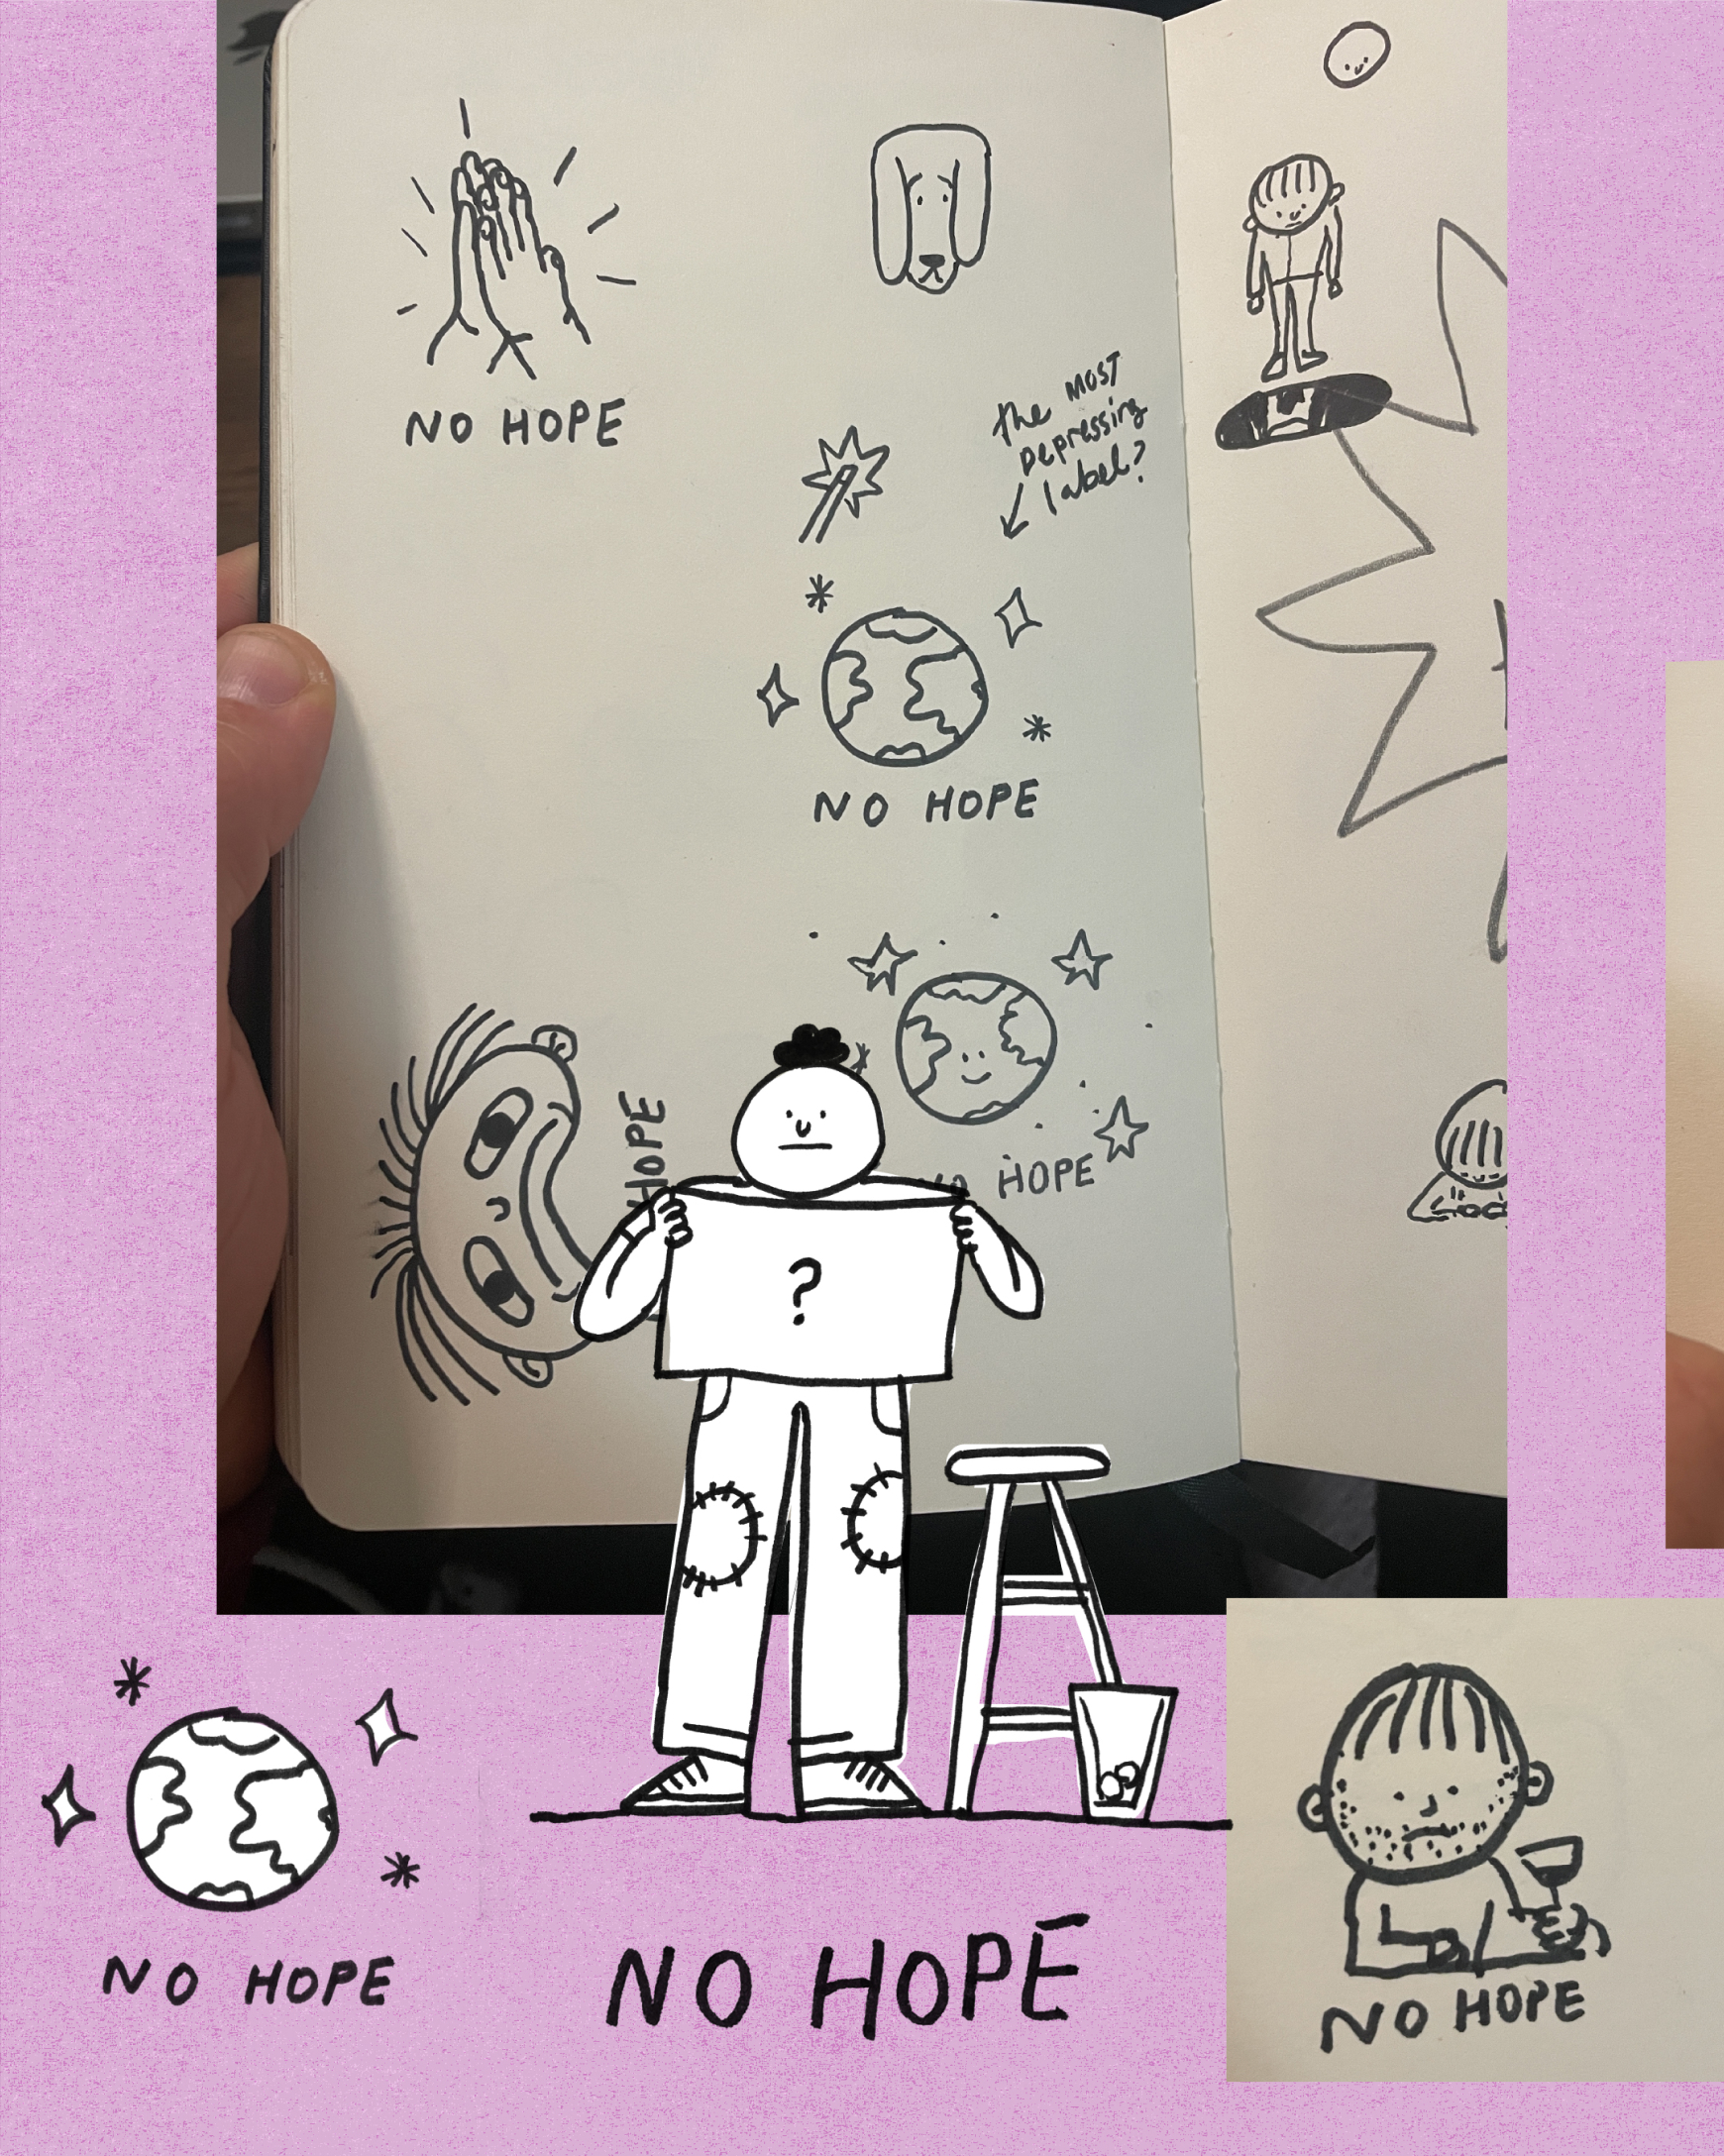 NO HOPE
the MOST
Depressing
label?
NO HOPE
HOPE
NO HOPE
?
NO HOPE
NO HOPE
NO HOPE